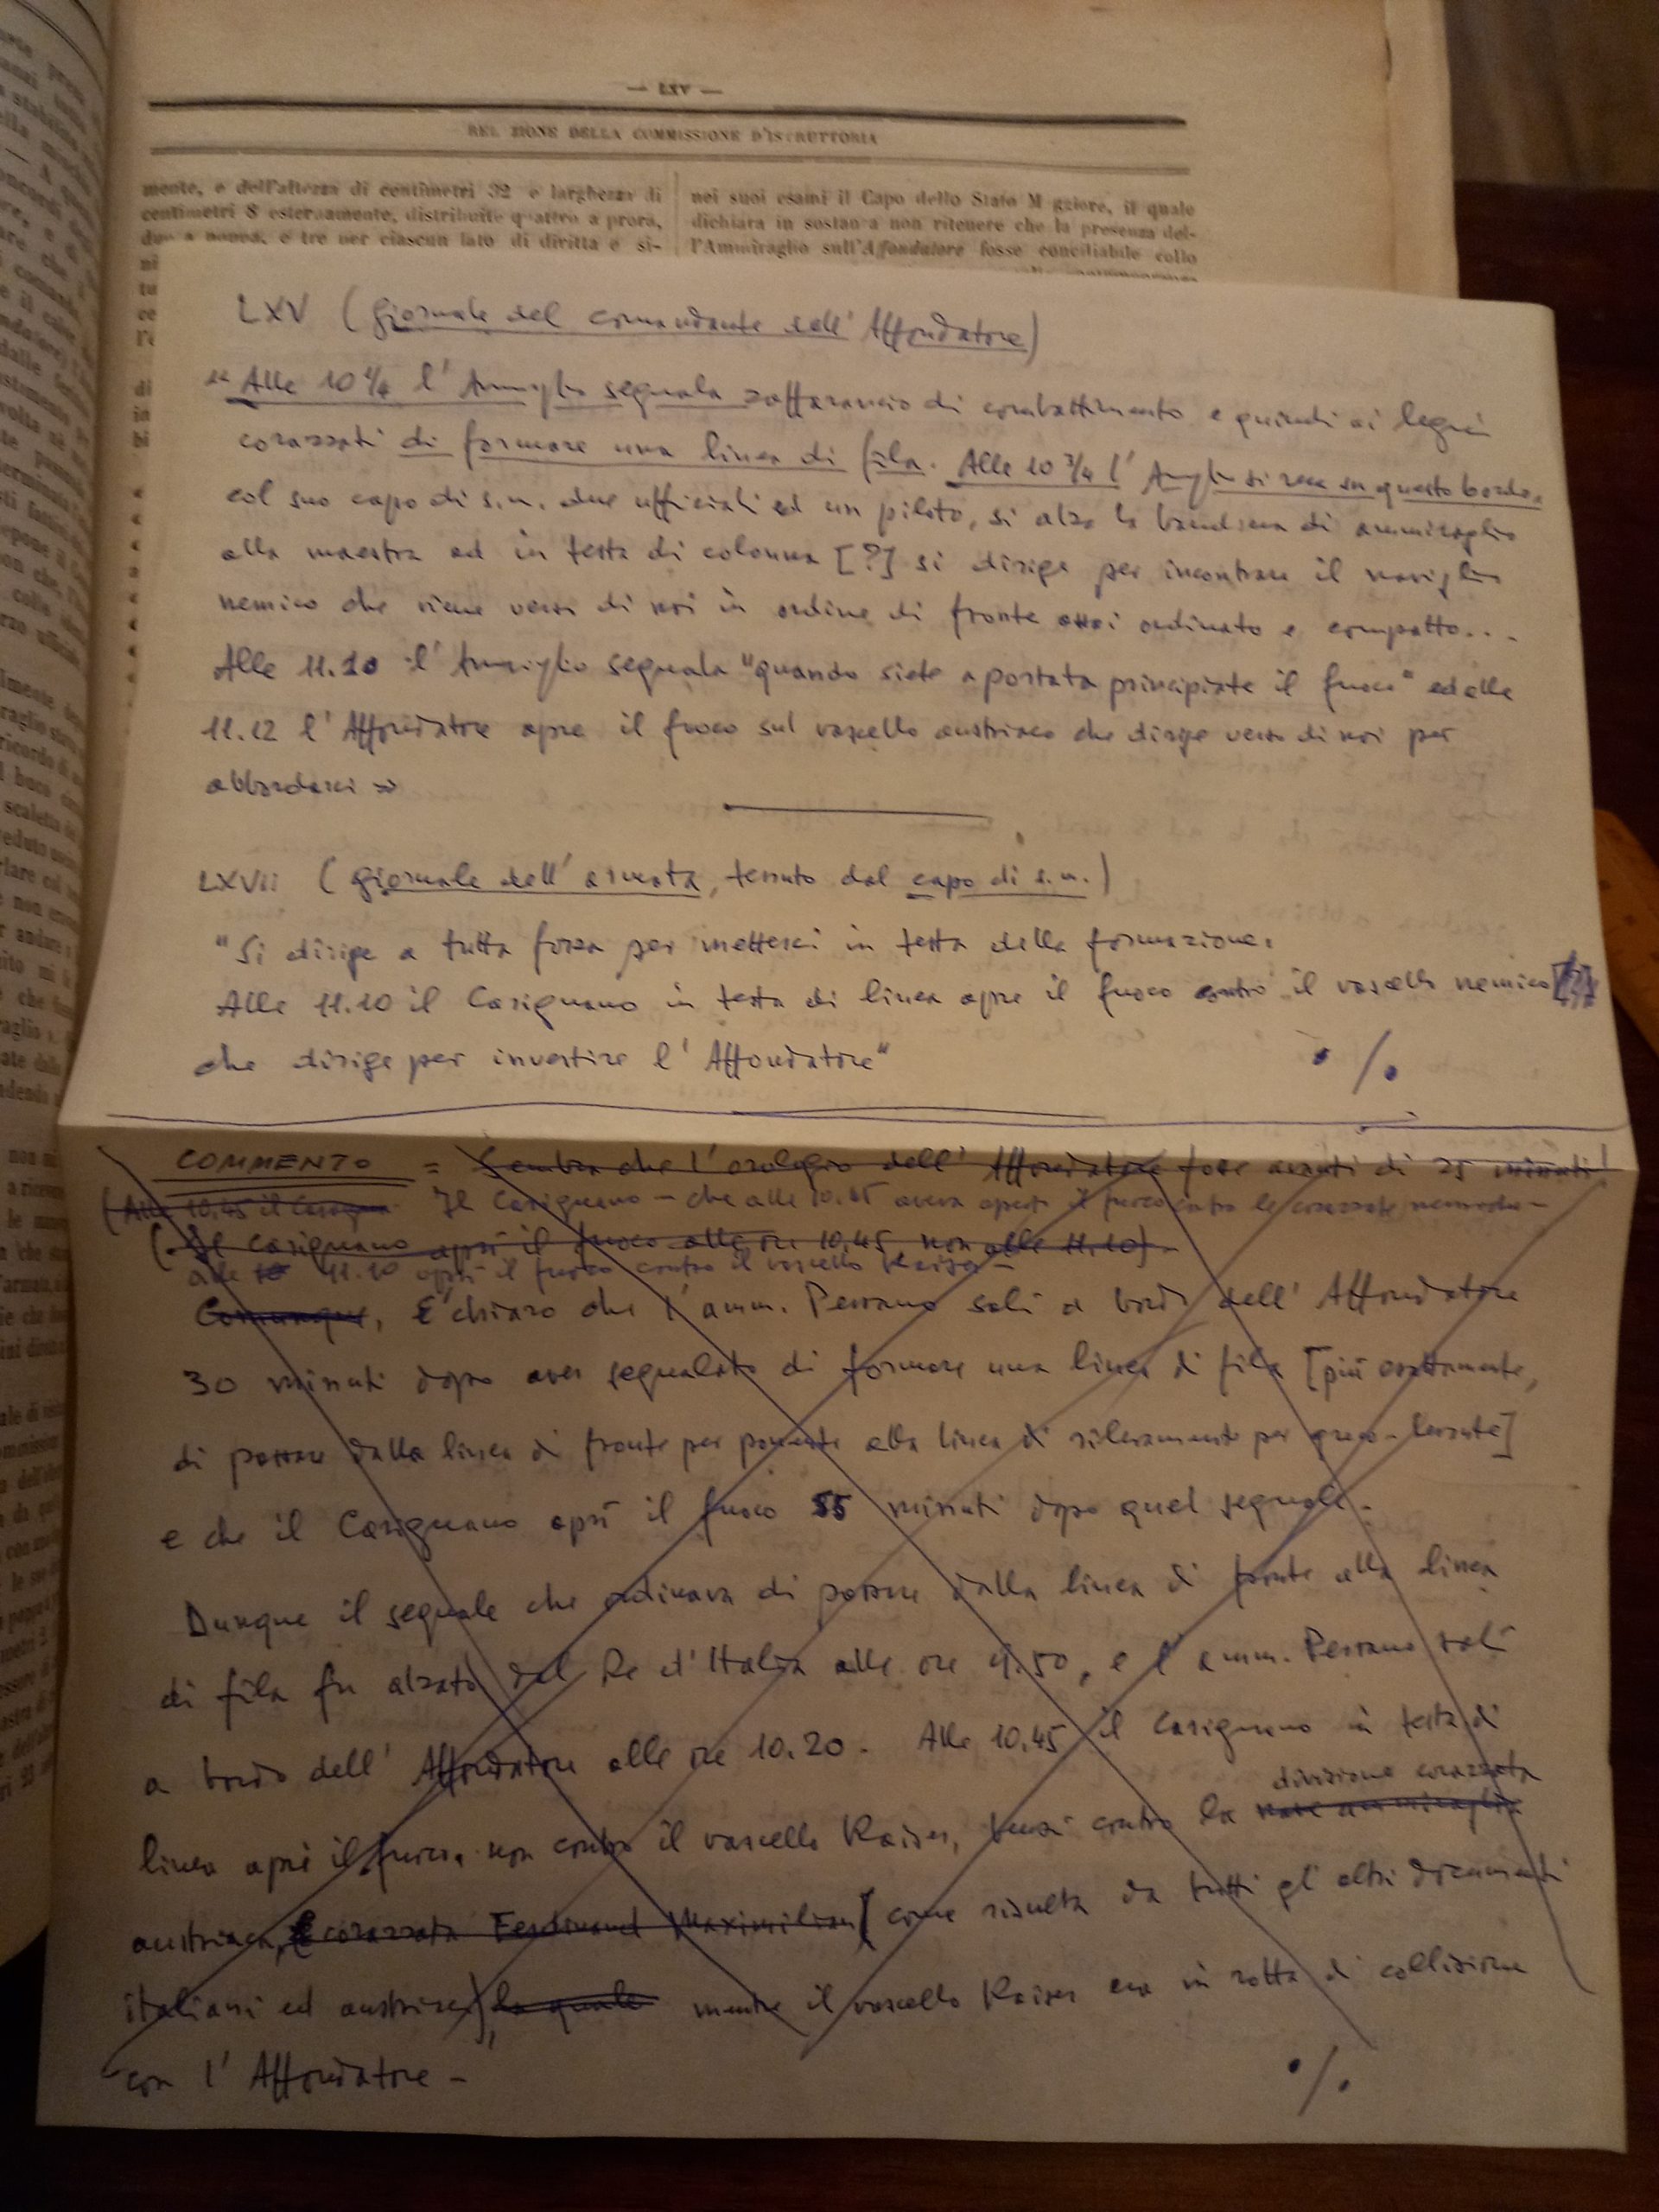 — LXV —
REL ZIONE DELLA COMMISSIONE D'ISTRUTTORIA
mente, e dell'altezza di centimetri 32 e larghezza di
centimetri 8 esternamente, distribuite quattro a prora,
due a poppa, e tre per ciascun lato di diritta e si-
nei suoi esami il Capo dello Stato M ggiore, il quale
dichiara in sostanza non ritenere che la presenza del-
l'Ammiraglio sull'Affondatore fosse conciliabile collo
LXV (giornale del comandante dell'Affondatore)
"Alle 10 1/4 l'Ammiglio segnala zaffarancio di combattimento e quindi ai legni
corazzati di formare una linea di fila. Alle 10 3/4 l'Ammglio si reca su questo bordo,
col suo capo di s.m. due ufficiali ed un piloto, si alza la bandiera di ammiraglio
alla maestra ed in testa di colonna [?] si dirige per incontrare il naviglio
nemico che viene verso di noi in ordine di fronte assai ordinato e compatto...
Alle 11.10 l'Ammiglio segnala "quando siete a portata principiate il fuoco" ed alle
11.12 l'Affondatore apre il fuoco sul vascello austriaco che dirige verso di noi per
abbordarci"
LXVII (giornale dell'armata, tenuto dal capo di s.m.)
"Si dirige a tutta forza per mettersi in testa della formazione.
Alle 11.10 il Carignano in testa di linea apre il fuoco contro il vascello nemico
che dirige per investire l'Affondatore"
./.
COMMENTO = Sembra che l'orologio dell'Affondatore fosse avanti di 25 minuti!
(Alle 10.45 il Carigna Il Carignano - che alle 10.45 aveva aperto il fuoco contro le corazzate nemiche -
(Il Carignano aprì il fuoco alle ore 10.45 non alle 11.10).
alle 10 11.10 aprì il fuoco contro il vascello Kaiser -
Comunque, E' chiaro che l'amm. Persano salì a bordo dell'Affondatore
30 minuti dopo aver segnalato di formare una linea di fila [più esattamente,
di passare dalla linea di fronte per ponente alla linea di rilevamento per greco-levante]
e che il Carignano aprì il fuoco 55 minuti dopo quel segnale.
Dunque il segnale che ordinava di passare dalla linea di fronte alla linea
di fila fu alzato dal Re d'Italia alle ore 9.50, e l'amm. Persano salì
a bordo dell'Affondatore alle ore 10.20. Alle 10.45 il Carignano in testa di
linea aprì il fuoco, non contro il vascello Kaiser, bensì contro la nave ammiraglia
divisione corazzata
austriaca, corazzata Ferdinand Maximilian [come risulta da tutti gl'altri documenti
italiani ed austriaci], la quale mentre il vascello Kaiser era in rotta di collisione
con l'Affondatore -
./.